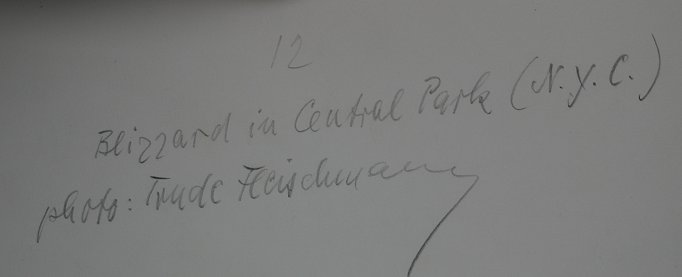 12
Blizzard in Central Park (N.Y.C.)
photo: Trude Fleischmann